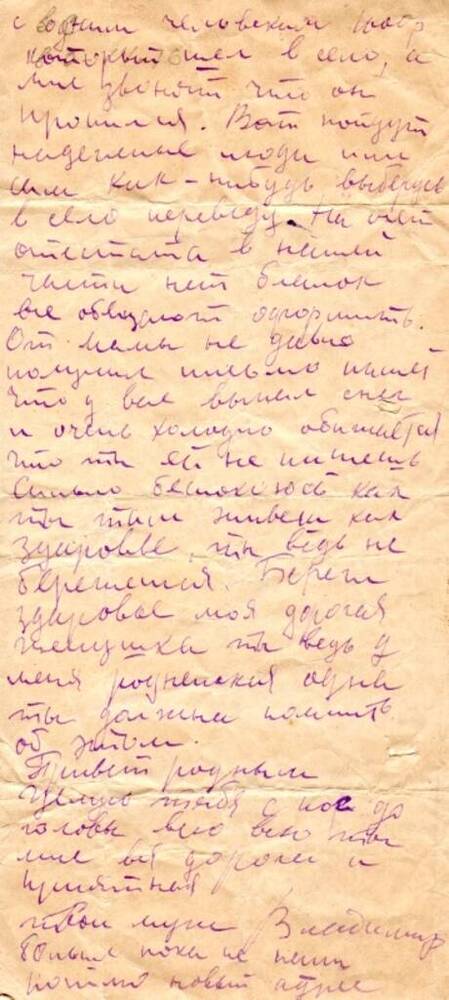 с одним человеком
который шел в село, а
мне звонят что он
пропился. Вот пойдут
надежные люди или
сам как-нибудь выберусь
в село переведу. На счет
атестата в нашей
части нет бланок
все обещают оформить.
От мамы не давно
получил письмо пишет
что у вас выпал снег
и очень холодно обижается
что ты ей не пишешь
Сильно беспокоюсь как
ты там живеш как
здоровье, ты ведь не
бережешся. Береги
здоровье моя дорогая
женушка ты ведь у
меня родненькая одна
ты должна помнить
об этом.
Привет родным
Целую тебя с ног до
головы всю всю ты
мне вся дорога и
приятная
твой муж Владимир
больше пока не пиши
новый адрес